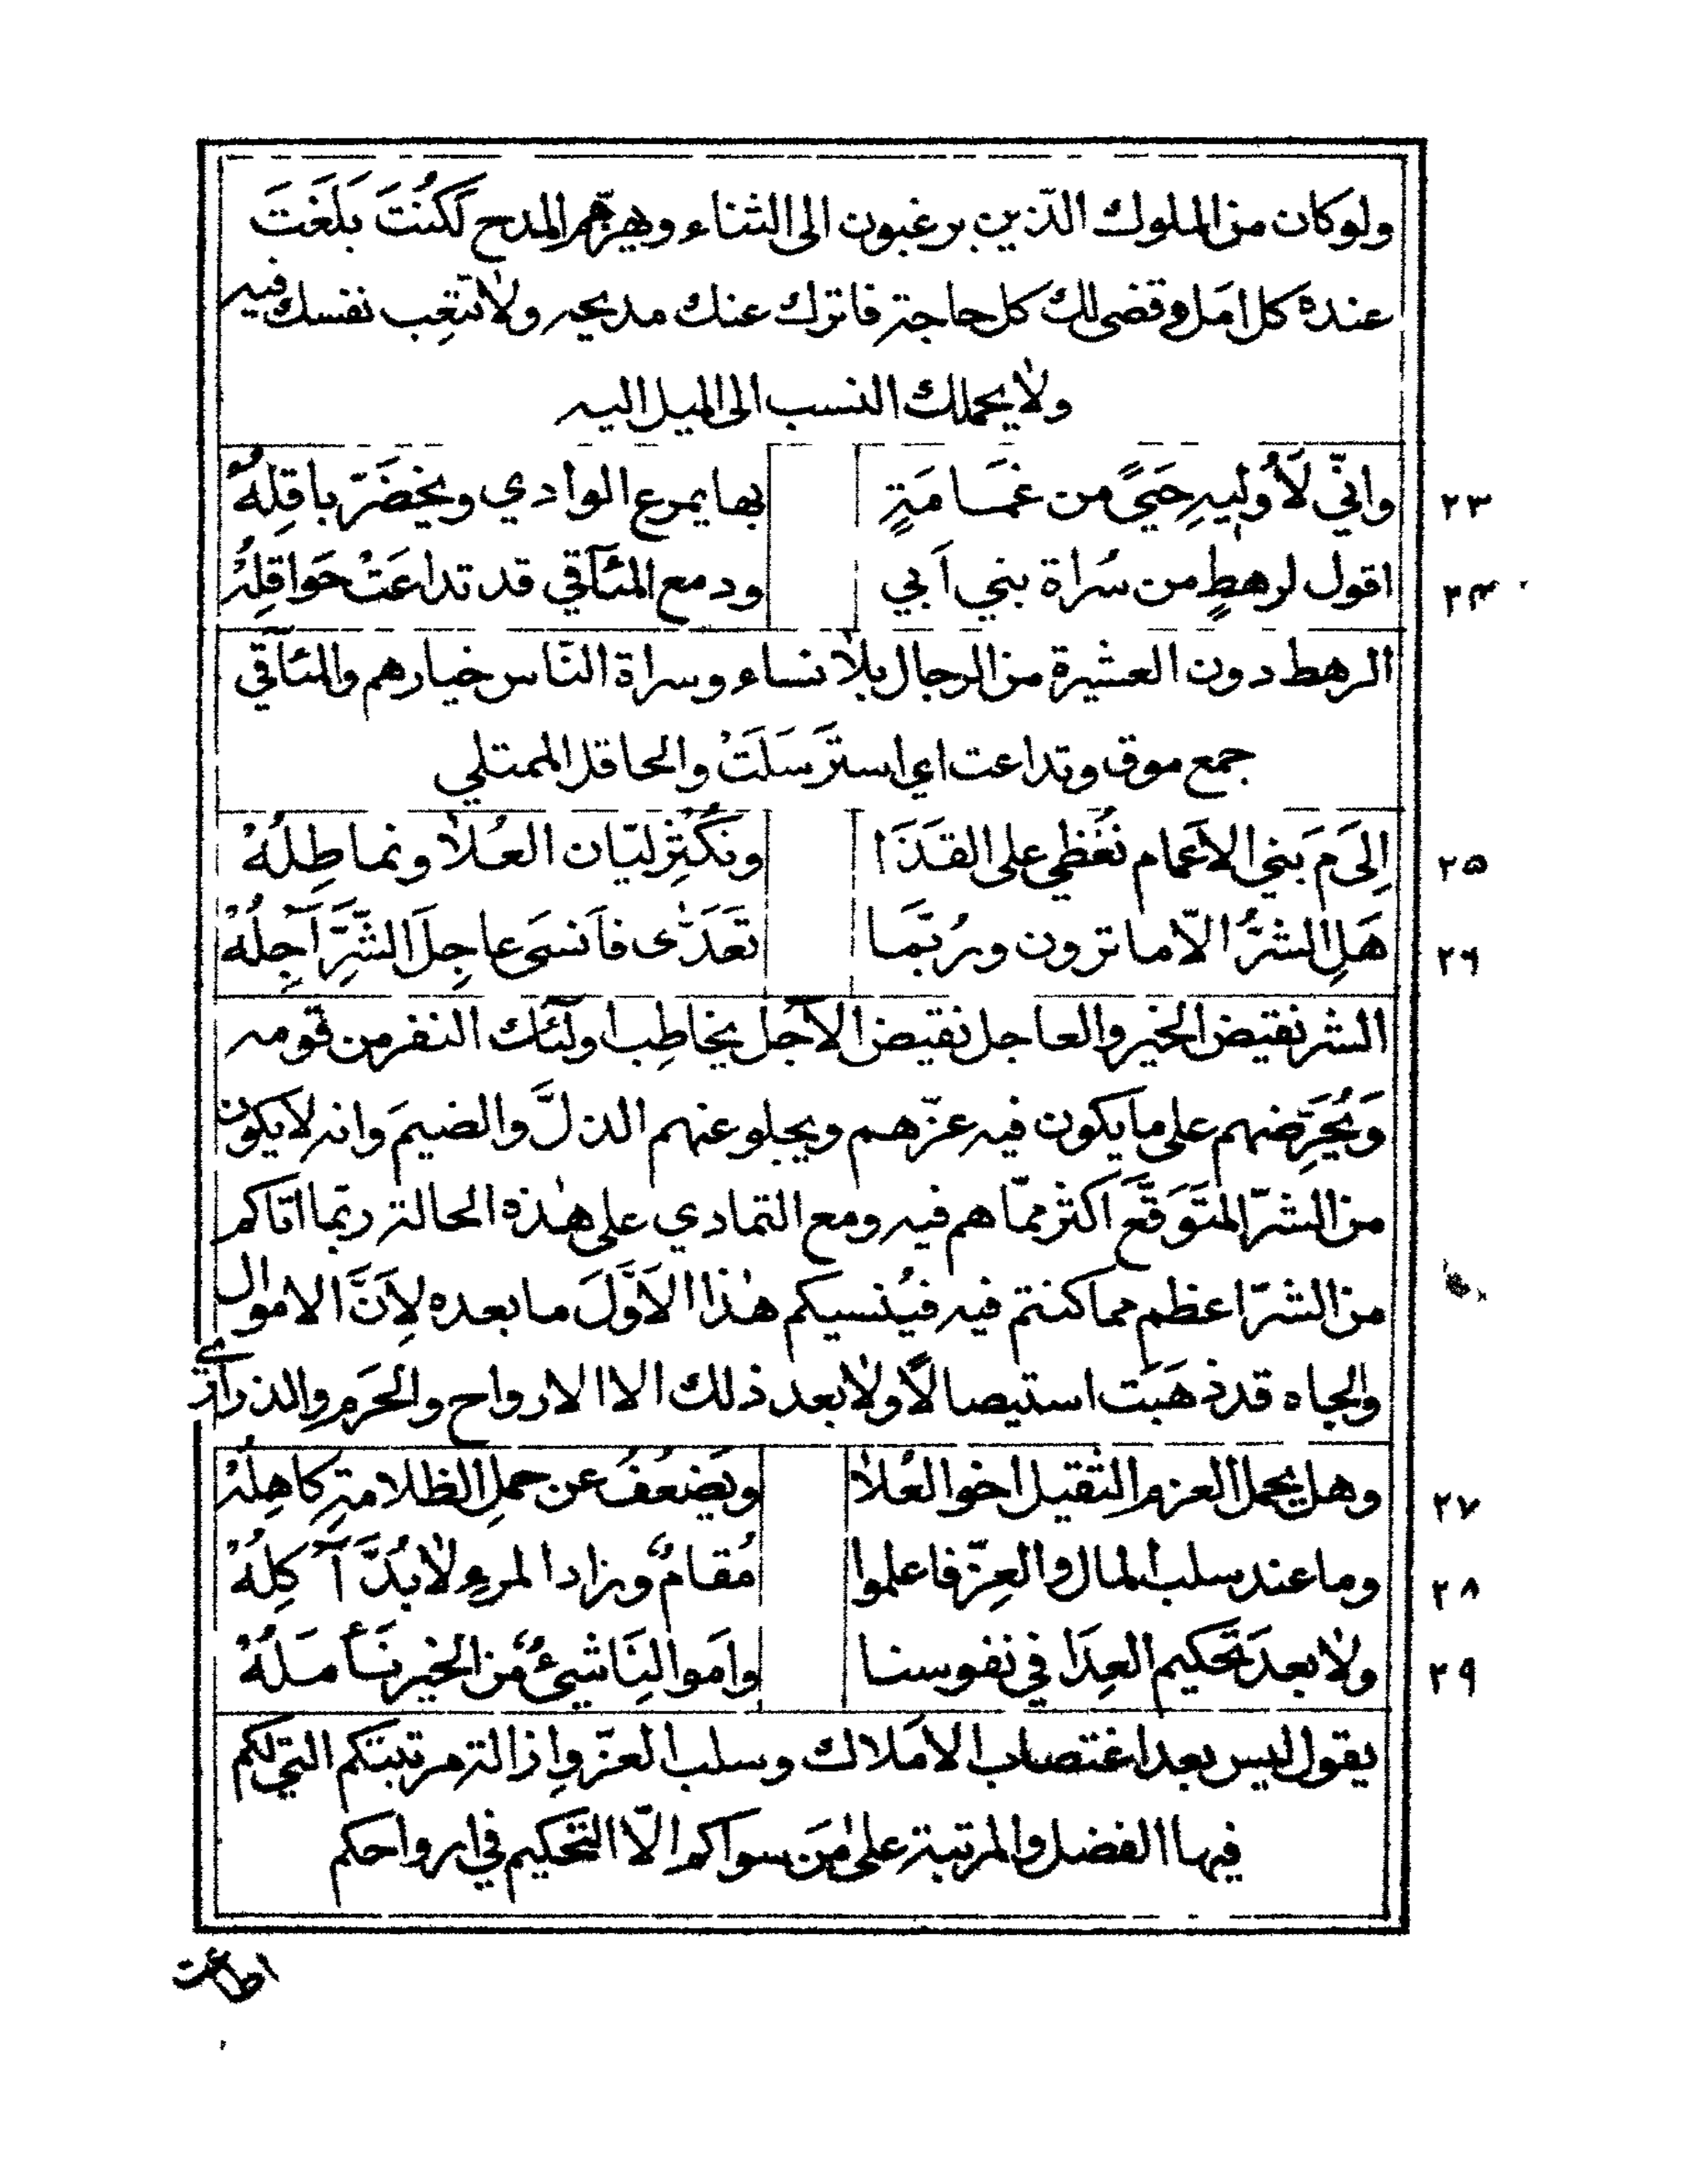 ولوكان من الملوك الذّين يرغبون الى الثناء ويهزّهم المدح لَكُنْتَ بَلَغْتَ
عنده كل امَل وقضى لك كل حاجة فاترك عنك مديحه ولا تتعِب نفسك فيه
ولا يحملك النسب الى الميل اليه
٢٣ وانّي لَأُوليهِ حَيَىً من غمَامَةٍ بها يمرع الوادي ويخضَرّ باقِلُهُ
٢٤ اقول لرهطٍ من سُراة بني اَبي ودمع المئآقي قد تداعَتْ حَوَاقِلُهْ
الرهط دون العشيرة من الرجال بلا نساء وسراة النّاس خيارهم والمئآقي
جمع موق وتداعت اي استَرسَلَتْ والحاقل الممتلي
٢٥ اِلَى مَ بَني الاَعمام نُغْظي على القَذَا ونُكْثِرُ ليّان العُلا ونماطِلُهْ
٢٦ هَلِ الشرُّ الاّ ما ترون ورُبّمَا تَعَدّى فاَنسَى عاجِلَ الشّرِّ آجِلُهْ
الشر نقيض الخير والعاجل نقيض الآجَل يخاطِب اولَئك النفر من قومه
وَيُحَرِّضهم على ما يكون فيه عزّهم ويجلو عنهم الذلَّ والضيمَ وانه لا يكون
من الشرّ المتَوَقَّع اكثر ممّا هم فيه ومع التمادي على هٰذه الحالة ربّما اتاكم
من الشرّ اعظم مما كنتم فيه فيُنسيكم هٰذا الاَوَّلَ ما بعده لِاَنَّ الاموال
والجاه قد ذهَبَت استيصالاً ولا بعد ذلك الا الارواح والحَرَم والذراري
٢٧ وهل يحمل العزم الثقيل اخو العُلا ويَضعُفُ عن حملِ الظلامةِ كاهِلُهْ
٢٨ وما عند سلب المال والعِزّ فاعلموا مُقامٌ وزاد المرءِ لا بُدَّ آكِلُهْ
٢٩ ولا بعدَ تحكيم العِدَا في نفوسنا وامَوالِنَا شيئٌ من الخير نَأمَلُهْ
يقول ليس بعد اغتصاب الاَملاك وسلب العزّ وازالة مرتبتكم التي لكم
فيها الفضل والمرتبة على مَن سواكم الاّ التحكيم في ارواحكم